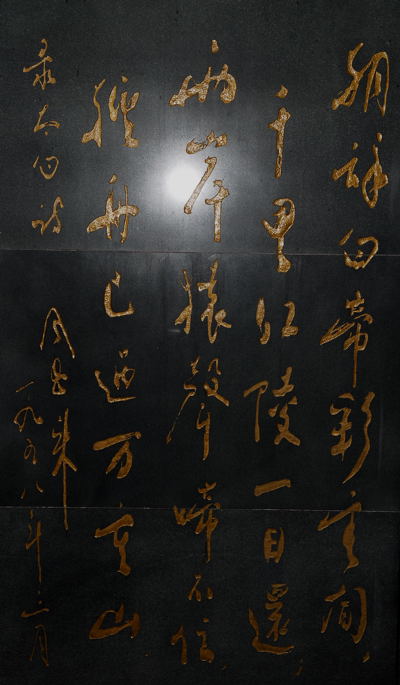 朝辞白帝彩云间，
千里江陵一日還，
兩岸猿聲啼不住，
輕舟已過万重山
录太白诗
周恩来
一九五八年三月